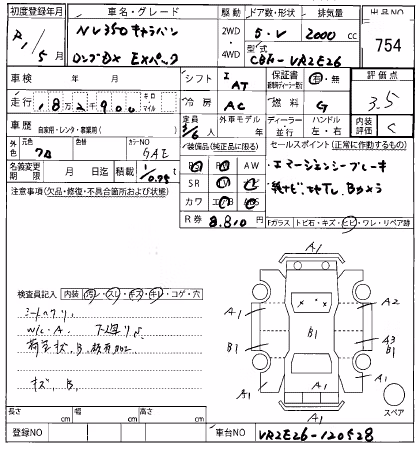 初度登録年月 車名・グレード 駆動 ドア数・形状 排気量 出品NO
R1年 5月 NV350キャラバン 2WD 4WD 5・V 2000 cc 754
ロングDX EXパック 型式 CBA-VR2E26
車検 年 月 シフト I AT 保証書 有・無 評価点
走行 18万2900 キロ マイル 冷房 AC 燃料 G 3.5
車歴 自家用・レンタ・事業用( ) 定員 3/6 外車モデル 年 ディーラー 並行 ハンドル 左・右 内装評価 C
外色 元色 色替 カラーNO GAE
装備品(純正品に限る) セールスポイント(正常に作動するもの)
名義変更期限 月 日迄 積載 t AW
SR
カワ
エマージェンシーブレーキ
R券 8,810 円
注意事項(欠品・修復・不具合箇所および状態) Fガラス トビ石・キズ・ヒビ・ワレ・リペア跡
検査員記入 内装 汚レ・スレ・キズ・キレ・コゲ・穴
シートヘタリ
W/C・A 下廻りS
キズ、B、
A1
A1 A2
B1 B1 B1 A3
A1 A1
A1
スペア
長さ cm 幅 cm 高さ cm
登録NO 車台NO VR2E26-120528